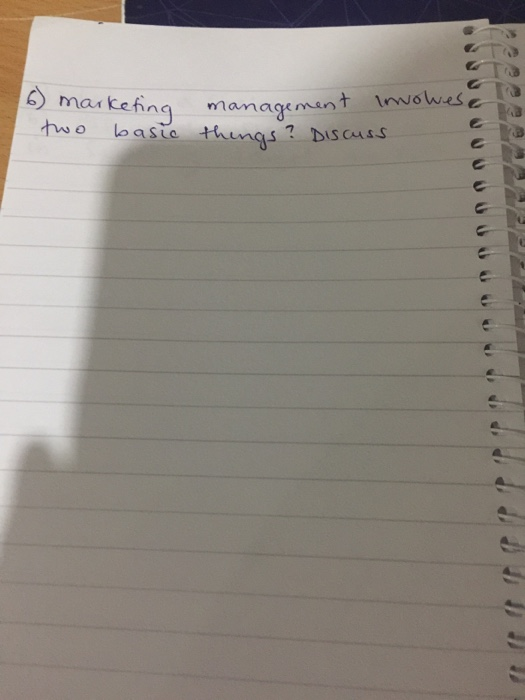 6) marketing management involves
two basic things? Discuss